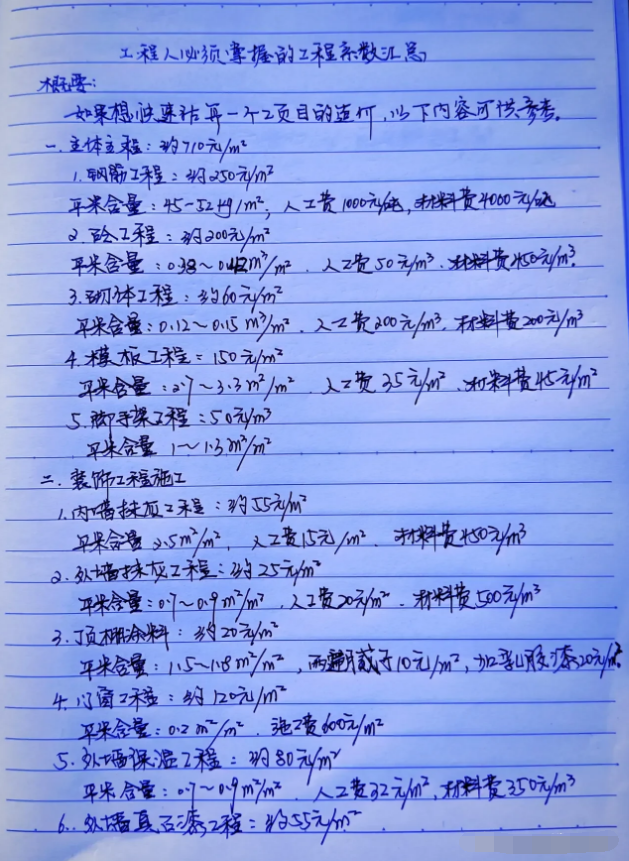 工程人必须掌握的工程系数汇总
概要:
如果想快速估算一个工项目的造价,以下内容可供参考。
一.主体工程:约710元/m²
1.钢筋工程:约250元/m²
平米含量:45-52kg/m²,人工费1000元/吨,材料费4000元/吨
2.砼工程:约200元/m²
平米含量:0.38~0.42m³/m².人工费50元/m³.材料费450元/m³.
3.砌体工程:约60元/m²
平米含量:0.12~0.15m³/m².人工费200元/m³.材料费200元/m³
4.模板工程=150元/m²
平米含量:2.7~3.3m²/m².人工费35元/m².材料费45元/m²
5.脚手架工程:50元/m³
平米含量1~1.3m³/m²
二.装饰工程施工
1.内墙抹灰工程:约55元/m²
平米含量2.5m²/m²,人工费15元/m².材料费450元/m³
2.外墙抹灰工程:约25元/m²
平米含量:0.7~0.9m²/m²,人工费20元/m².材料费500元/m³
3.顶棚涂料:约20元/m²
平米含量:1.5~1.8m²/m²,两腻子10元/m²,加乳胶漆20元/m².
4.门窗工程:约120元/m²
平米含量:0.2m²/m².施工费600元/m²
5.外墙保温工程:约80元/m²
平米含量:0.7~0.9m²/m².人工费32元/m²,材料费350元/m³
6..外墙真石漆工程:约55元/m²